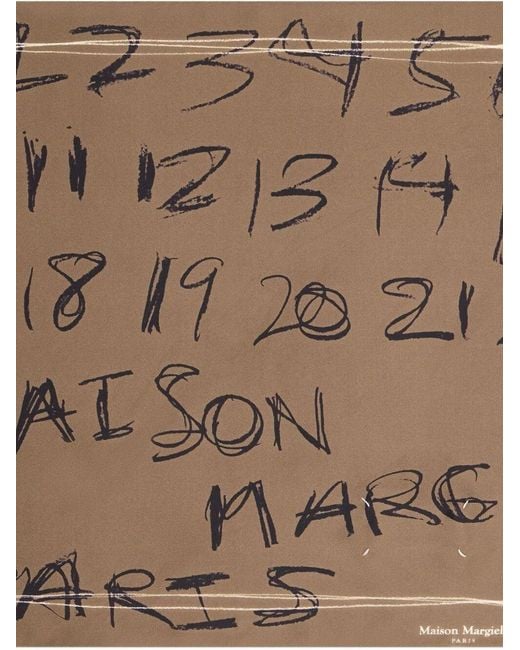 2 3 4 5
11 12 13 14
18 19 20 21
AISON
MARG
ARIS
Maison Margiel
PARIS